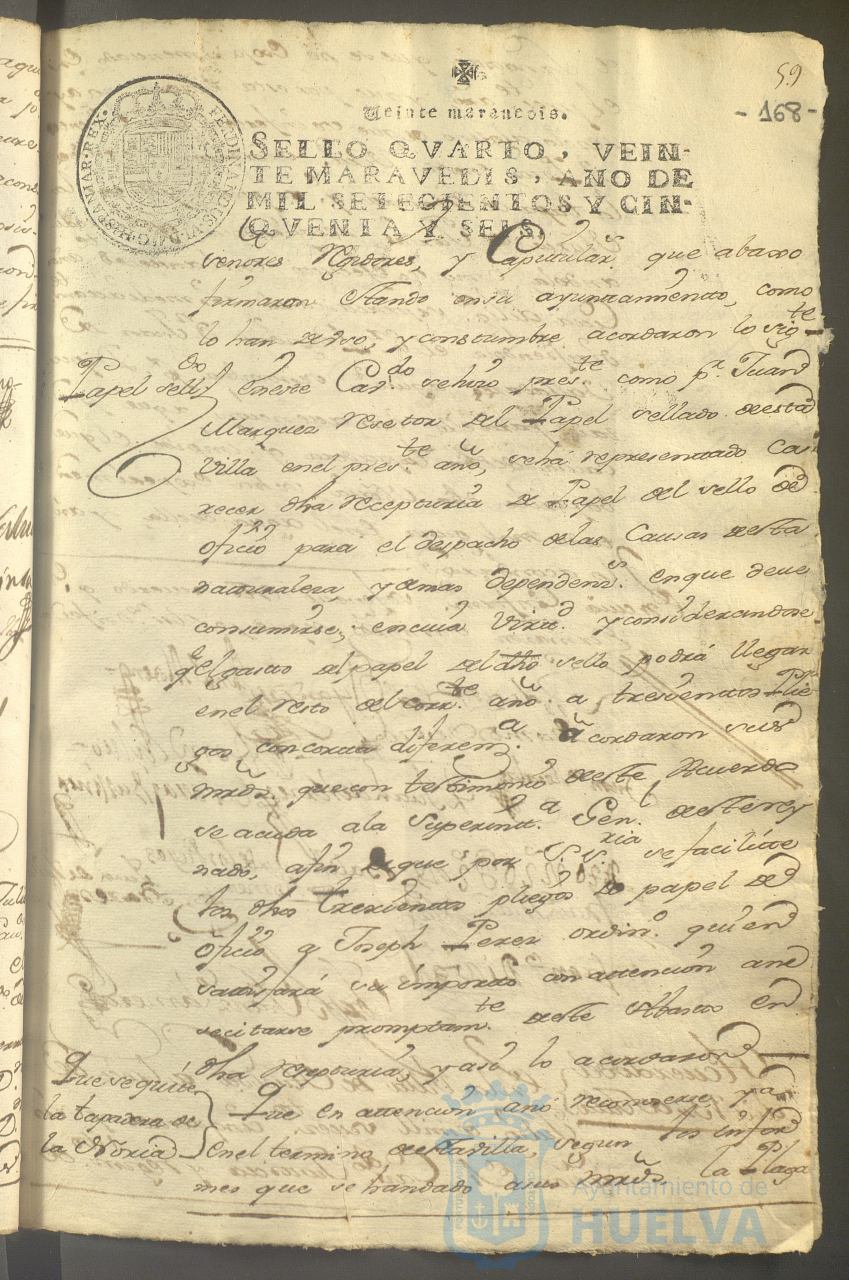 59
-168-
Veinte maravedis.
SELLO QVARTO, VEIN-
TE MARAVEDIS, AÑO DE
MIL SETECIENTOS Y CIN-
QVENTA Y SEIS.
FERDINANDUS VI D G HISPANIAR REX
señores Rexidores, y Capitulars. que abaxo
firmaron estando en su ayuntamiento, como
lo han de uso, y constumbre acordaron lo sigte
Papel selldo
En este Cavdo se hizo preste como pr. Juan
Marquez reseptor del Papel sellado desta
Villa en el preste año, se há representado ca-
recer dha recepturia de Papel del sello de
oficio para el despacho de las Causas desta
naturaleza y demas dependens. en que deve
consumirse; en cuia Virtd. y considerandose
qe el gasto del papel del dho sello podrá llegar
en el resto del corrte. año a trescientos Plie-
gos con corta diferena. Acordaron sus
mrds. que con testimonio deste Acuerdo
se acuda a la Superinta. Genl. deste rey
nado, a fin de que por S. sria se facilite
los dhos trescientos pliegos de papel de
oficio a Joseph Perez ordino. quien
satisfará su importe en attencion a ne
secitarse promptamte deste Abasto en
dha recepturia, y asi lo acordaron
Que se quite
la tapadera de
la Noria
Que en attencion a no reconoserse ya
en el termino desta Villa, segun los infor
mes que se han dado a sus mrds. la Plaga
Ayuntamiento de
HUELVA